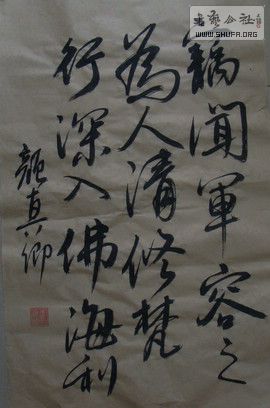 竊聞軍容之
為人清修梵
行深入佛海利
顏真卿
書藝公社
WWW.SHUFA.ORG